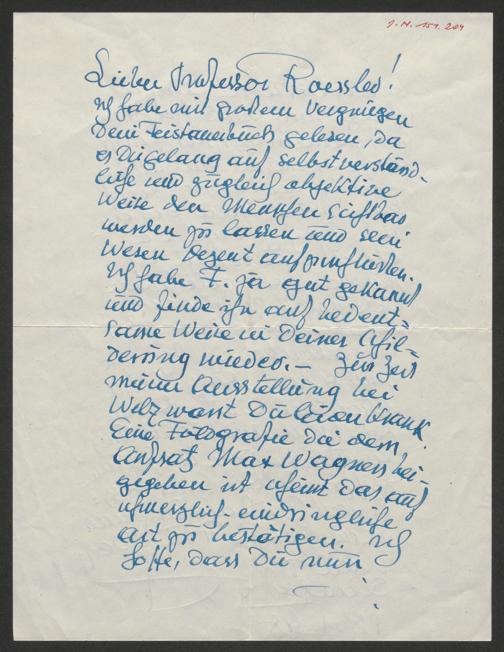 J.N. 151.204
Lieber Professor Roessler!
Ich habe mit großem Vergnügen
Dein Feistauerbuch gelesen, da
es Dir gelang auf selbstverständ-
liche und zugleich objektive
Weise den Menschen sichtbar
werden zu lassen und sein
Wesen dezent
Ich habe F. ja gut gekannt
und finde ihn auf bedeut-
same Weise in Deiner Schil-
derung wieder. – Zur Zeit
meiner Ausstellung bei
Welz warst Du leider krank.
Eine Fotografie die dem
Aufsatz Max Wagners bei-
gegeben ist scheint das auf
schmerzlich-eindringliche
Art zu bestätigen. Ich
hoffe, dass Du nun